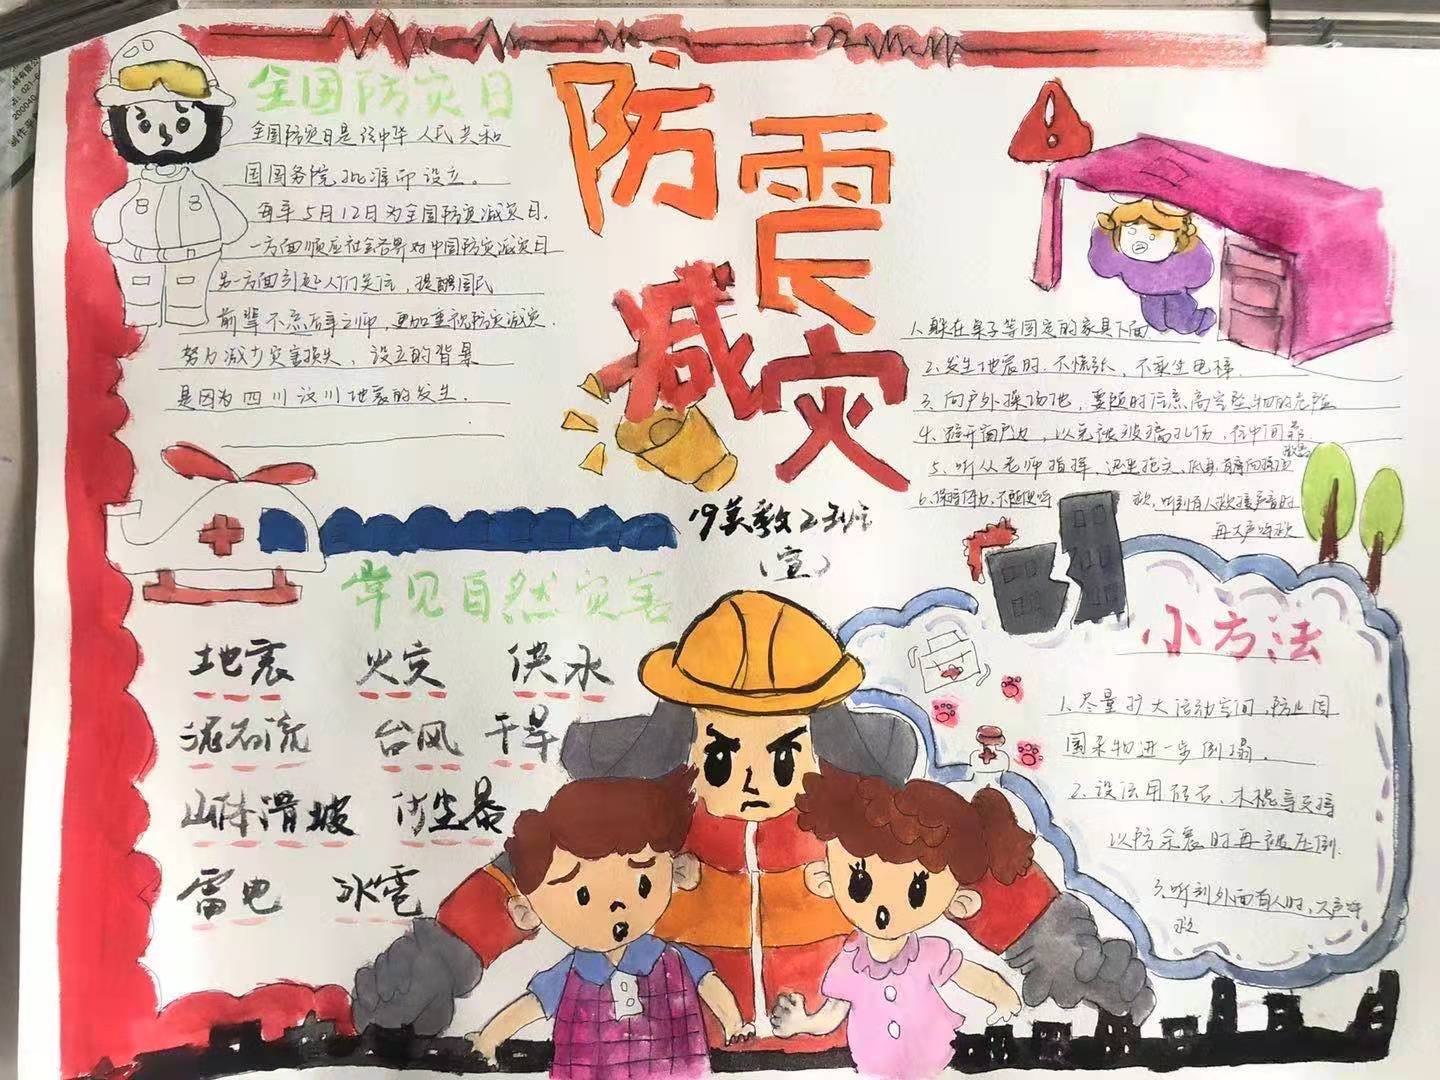 防震
减灾
全国防灾日
全国防灾日是经中华人民共和
国国务院批准而设立。
每年5月12日为全国防灾减灾日.
一方面顺应社会各界对中国防灾减灾日
另一方面引起人们关注，提醒国民
前辈不忘后事之师，更加重视防灾减灾.
努力减少灾害损失，设立的背景
是因为四川汶川地震的发生.
1.躲在桌子等固定的家具下面.
2.发生地震时.不慌张，不乘坐电梯.
3.向户外操场地，要随时注意高空坠物的危险
4.避开窗户边，以免被玻璃扎伤，往中间靠
5.听从老师指挥，迅速抱头、低身、有序向操场
6.保持体力,不随便呼救，听到有人救援声音时
再大声呼救
19英数2班
(宣)
常见自然灾害
地震 火灾 洪水
泥石流 台风 干旱
山体滑坡 沙尘暴
雷电 冰雹
小方法
1.尽量扩大活动空间，防止周
围杂物进一步倒塌.
2.设法用砖石、木棍等支撑
以防余震时再被压倒.
3.听到外面有人时，大声呼
救